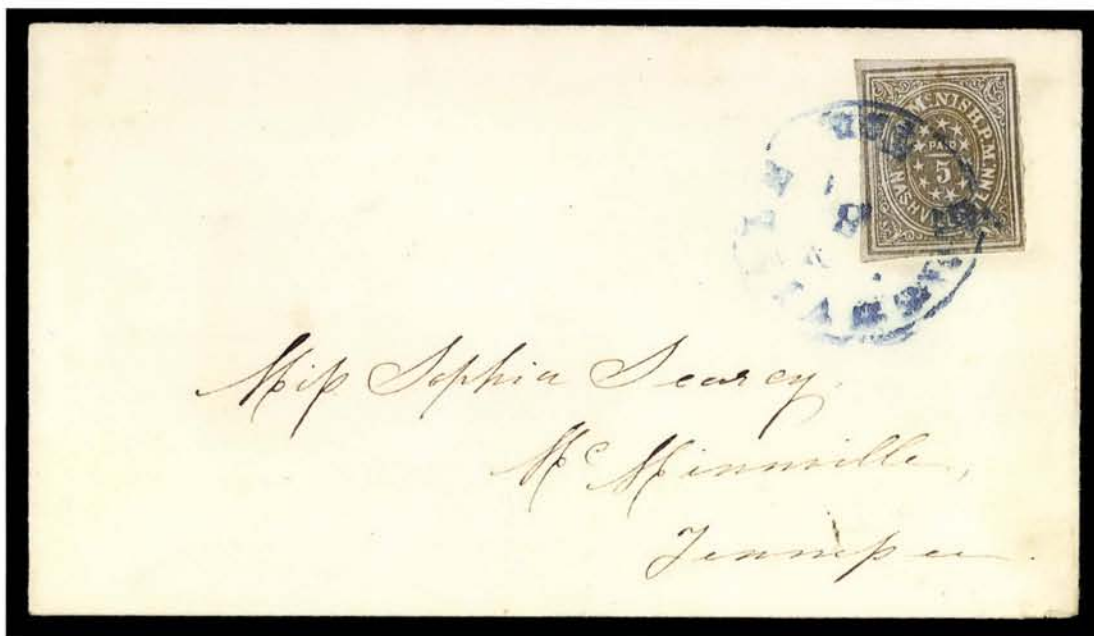 McNISH. P. M.
PAID
5
NASHVILLE TENN.
NASHVILLE
Miss Sophia Searcy.
McMinnville,
Tennessee.